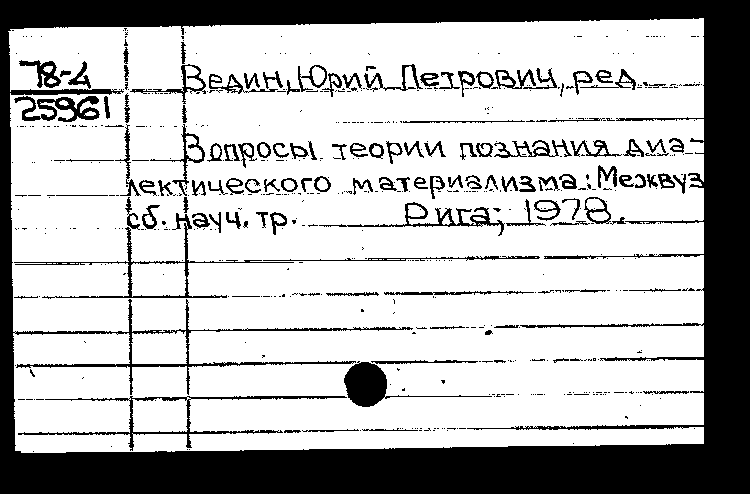 78-4
25961
Ведин, Юрий Петрович, ред.
Вопросы теории познания диа-
лектического материализма: Межвуз
сб. науч. тр. Рига, 1978.